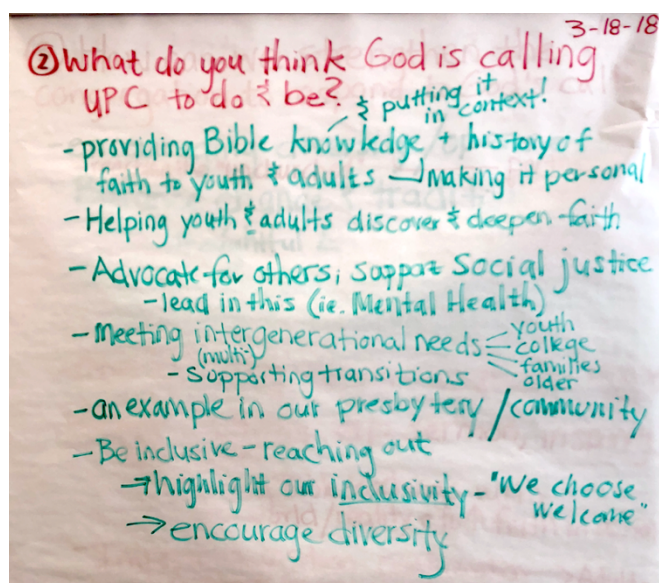 3-18-18
② What do you think God is calling
UPC to do & be?
& putting it
in context!
- providing Bible knowledge + history of
faith to youth & adults → making it personal
- Helping youth & adults discover & deepen faith
- Advocate for others; support Social justice
- lead in this (ie. Mental Health)
- Meeting intergenerational needs
(multi-)
youth
college
families
older
- Supporting transitions
- an example in our presbytery / community
- Be inclusive - reaching out
→ highlight our inclusivity - "We choose
welcome"
→ encourage diversity